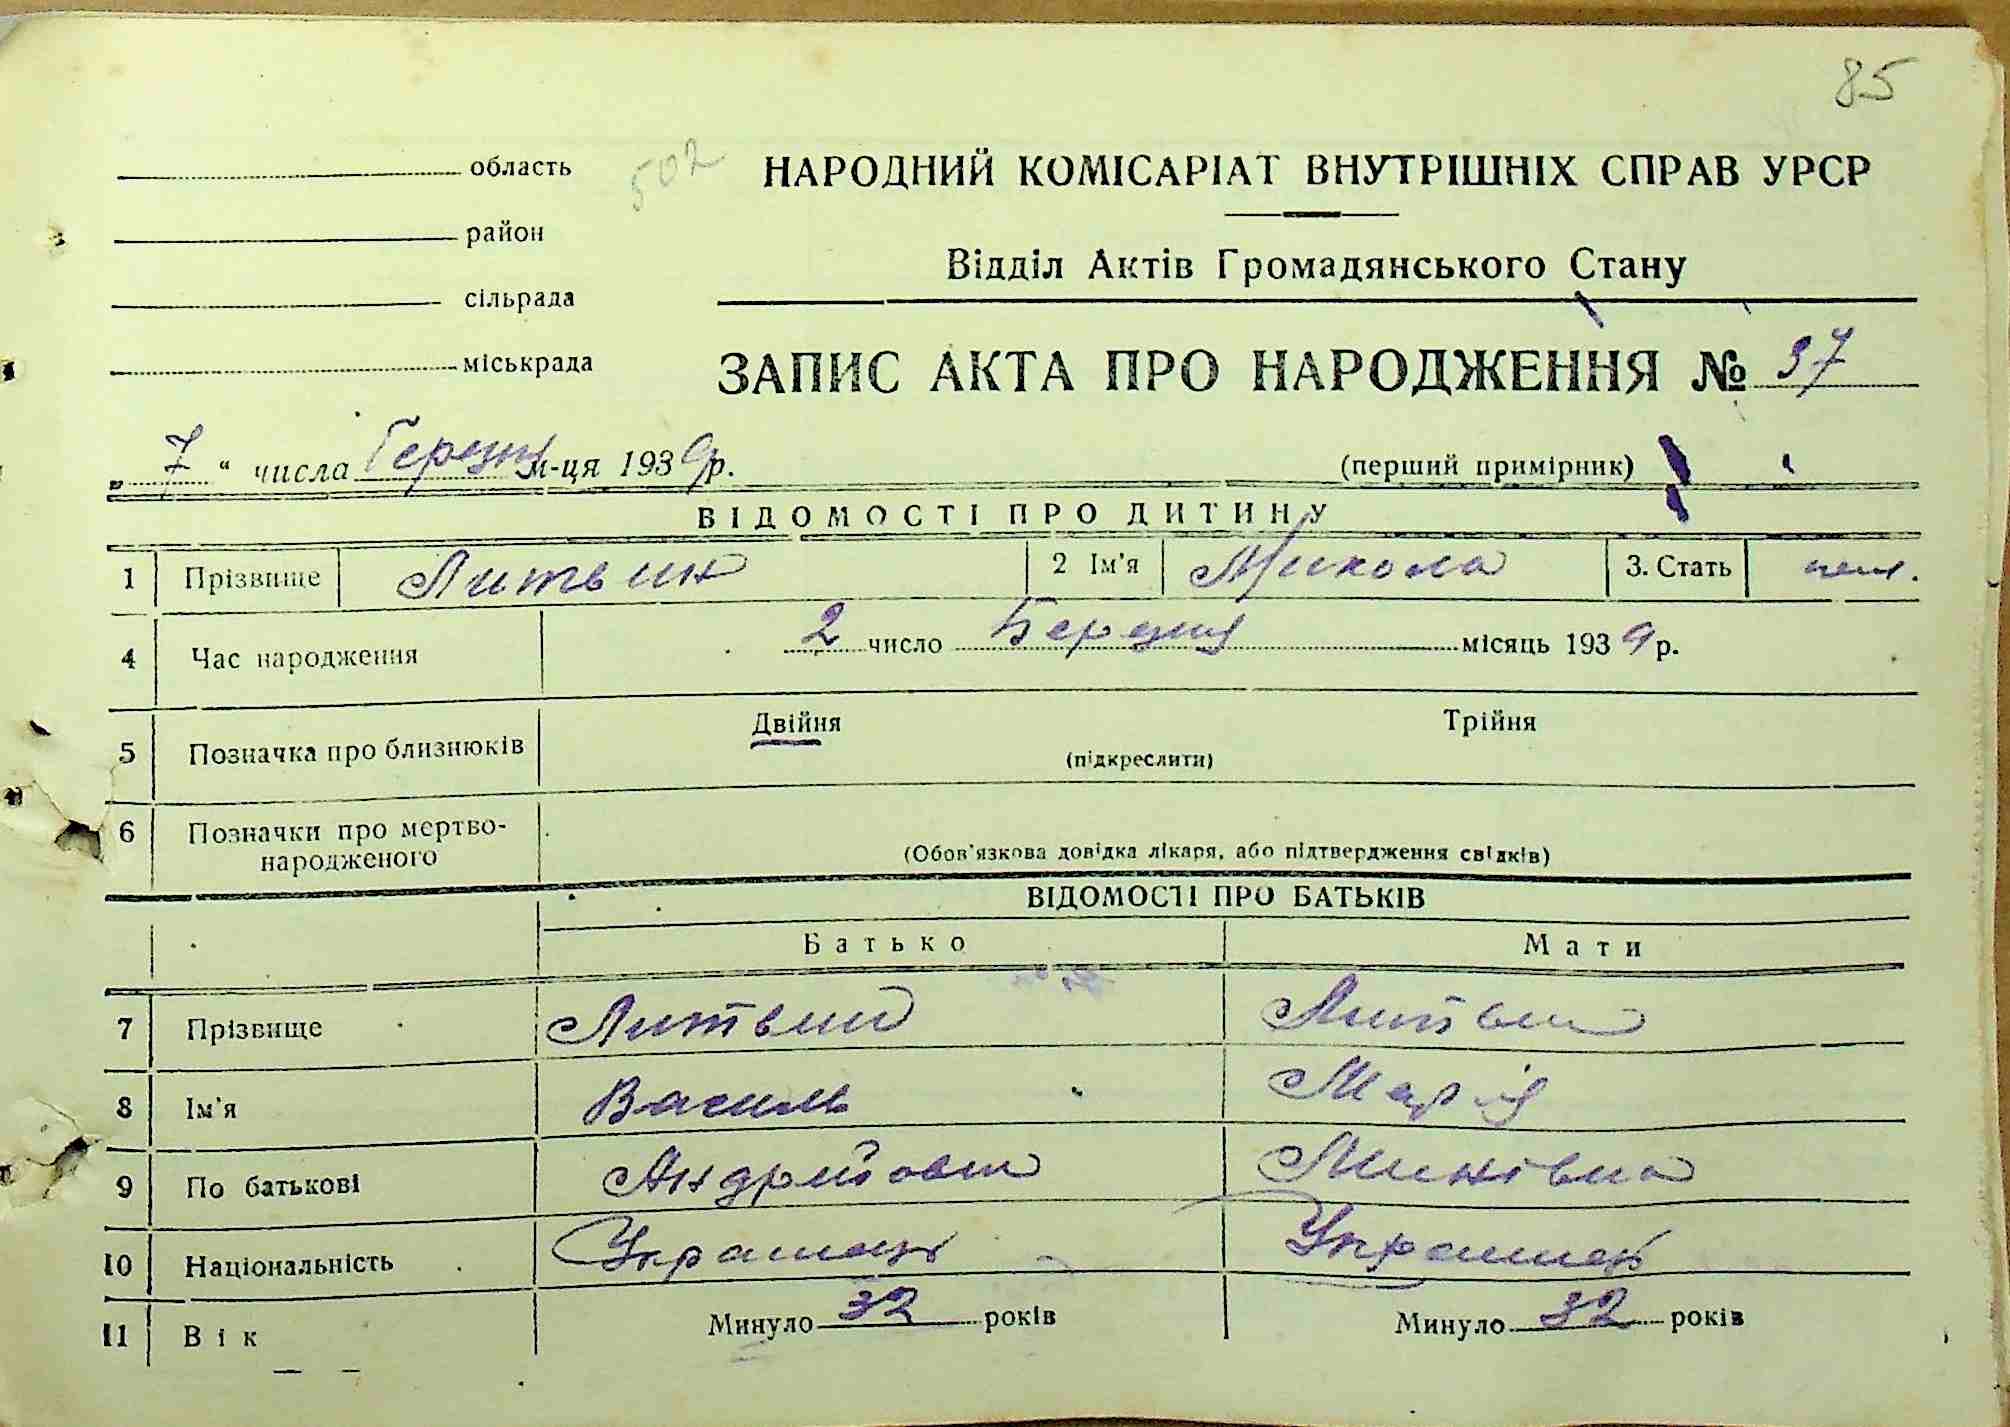 85
область
502
НАРОДНИЙ КОМІСАРІАТ ВНУТРІШНІХ СПРАВ УРСР
район
Відділ Актів Громадянського Стану
сільрада
міськрада
ЗАПИС АКТА ПРО НАРОДЖЕННЯ № 37
„ 7 “ числа Березня м-ця 1939 р.
(перший примірник)
ВІДОМОСТІ ПРО ДИТИНУ
1 Прізвище Литвин 2 Ім'я Микола 3. Стать
4 Час народження 2 число Березня місяць 1939 р.
5 Позначка про близнюків Двійня Трійня
(підкреслити)
6 Позначки про мертво-
народженого
(Обов'язкова довідка лікаря, або підтвердження свідків)
ВІДОМОСТІ ПРО БАТЬКІВ
Батько Мати
7 Прізвище Литвин Литвин
8 Ім'я Василь Марія
9 По батькові Андрійович Минівна
10 Національність Українець Українец
11 Вік Минуло 32 років Минуло 32 років